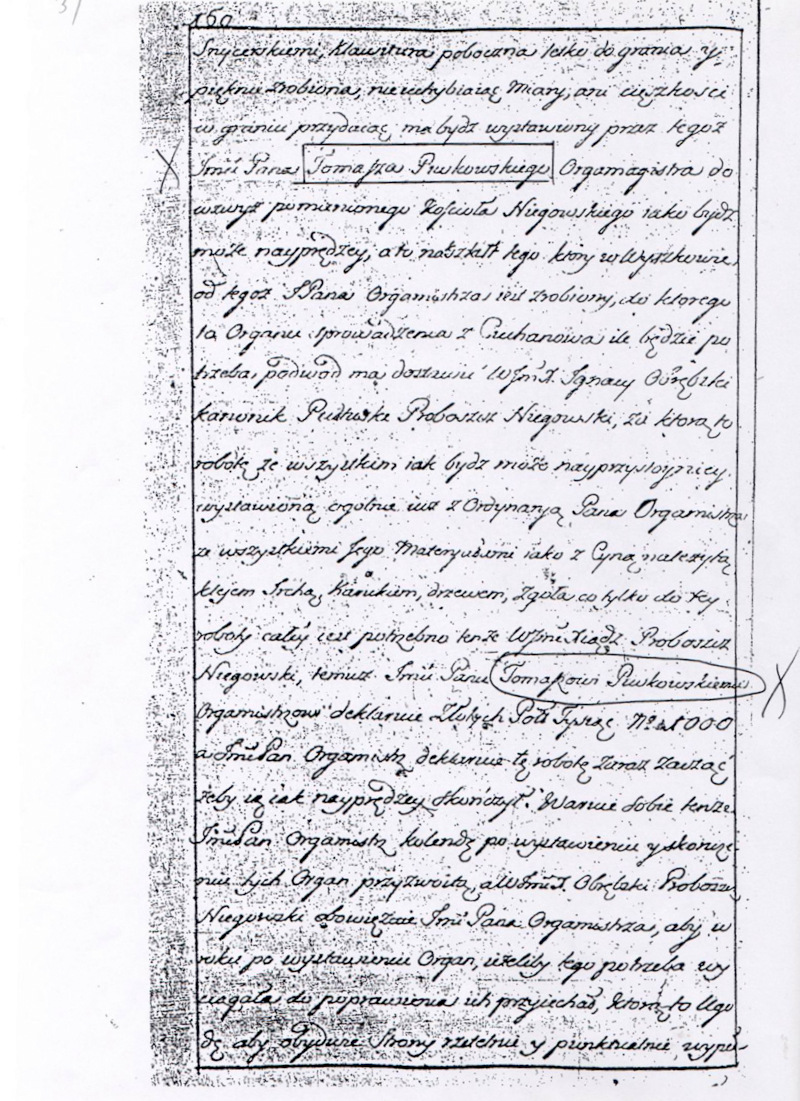 160
Snycerskiemi, Klawitura poboczna letko do grania y
pięknie zrobiona, nieuchybiaiąc Miary, ani cięszkości
w graniu przydaiąc, ma bydz wystawiony przez tegoż
Jmći Pana Tomasza Pwkowskiego Orgamagistra do
wzwyż pomienionego Kościoła Niegowskiego iako bydź
może nayprędzey, a to nakształt tego ktory w Wyszkowie,
od tegoż JPana Orgamistrza iest zrobiony, do ktorego
to Organu sprowadzenia z Ciechanowa ile będzie po
trzeba, podwod ma dostawić WJmć X. Ignacy Obrębski
kanonik Pułtuski Proboszcz Niegowski, za ktorą to
robotę ze wszystkim iak bydz może nayprzystoyniey
wystawioną ogolnie iuż z Ordynaryą Pana Orgamistrza
ze wszystkiemi Jego Materyałami iako z Cyną należytą
klejem Irchą, Karukiem, drzewem, zgoła co tylko do tey
roboty całey iest potrzebno tenże WJmć Xiądz Proboszcz
Niegowski, temuż Jmći Panu Tomaszowi Pwkowskiemu
Orgamistrzowi deklaruie Złotych Pols Tysiąc No 1000
a Jmć Pan Orgamistrz deklaruie tę robotę zaraz zacząć
żeby ią iak nayprędzey skończył. Waruie sobie tenże
Jmć Pan Orgamistrz kolendę po wystawieniu y skończe
niu tych Organ przyzwoitą, a WJmć X. Obrębski Proboszcz
Niegowski obowięzuie Jmći Pana Orgamistrza, aby w
roku po wystawieniu Organ, ieżeliby tego potrzeba wy
ciągała do poprawienia ich przyiechał, ktorą to Ugo
dę aby obydwie Strony rzetelnie y punktualnie wypeł-